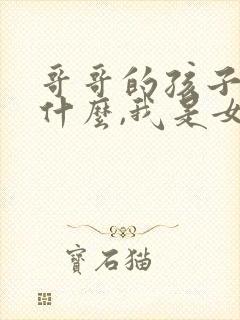 哥哥的孩子
什麼,我是女
寶石猫